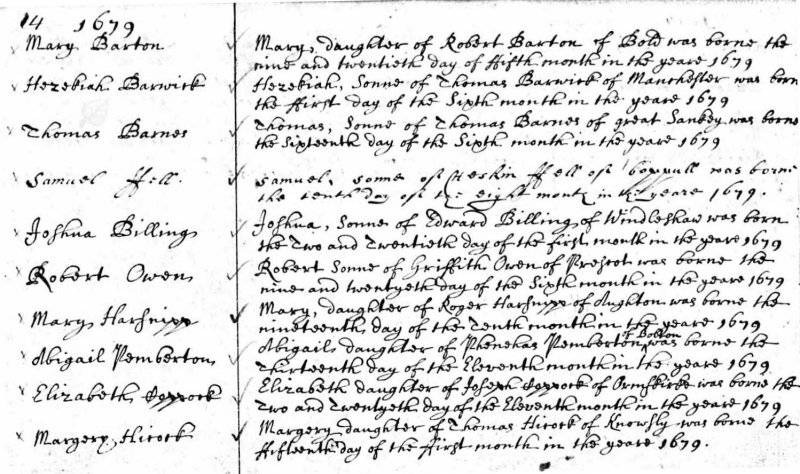 14 1679
Mary Barton
Mary, daughter of Robert Barton of Bold was borne the
nine and twentieth day of ffifth month in the yeare 1679
Hezekiah Barwick
Hezekiah, Sonne of Thomas Barwick of Manchester was born
the ffirst day of the Sixth month in the yeare 1679
Thomas Barnes
Thomas, Sonne of Thomas Barnes of great Sankey was borne
the Sixteenth day of the Sixth month in the yeare 1679
Samuel ffell.
Samuel, sonne of ffell of was borne
the tenth day of the eight month in the yeare 1679.
Joshua Billing
Joshua, Sonne of Edward Billing of Windleshaw was born
the Two and Twentieth day of the first month in the yeare 1679
Robert Owen
Robert Sonne of Griffith Owen of Prescot was borne the
nine and twentyeth day of the Sixth month in the yeare 1679
Mary
Mary, daughter of Roger of Aughton was borne the
nineteenth day of the Tenth month in the yeare 1679
Abigail Pemberton
Abigail daughter of Phenehas Pemberton of Bolton was borne the
Thirteenth day of the Eleventh month in the yeare 1679
Elizabeth
Elizabeth daughter of Joseph of Ormskirke was borne the
Two and Twentyeth day of the Eleventh month in the yeare 1679
Margery Hicock
Margery daughter of Thomas Hicock of Knowsly was borne the
ffifteenth day of the ffirst month in the yeare 1679.